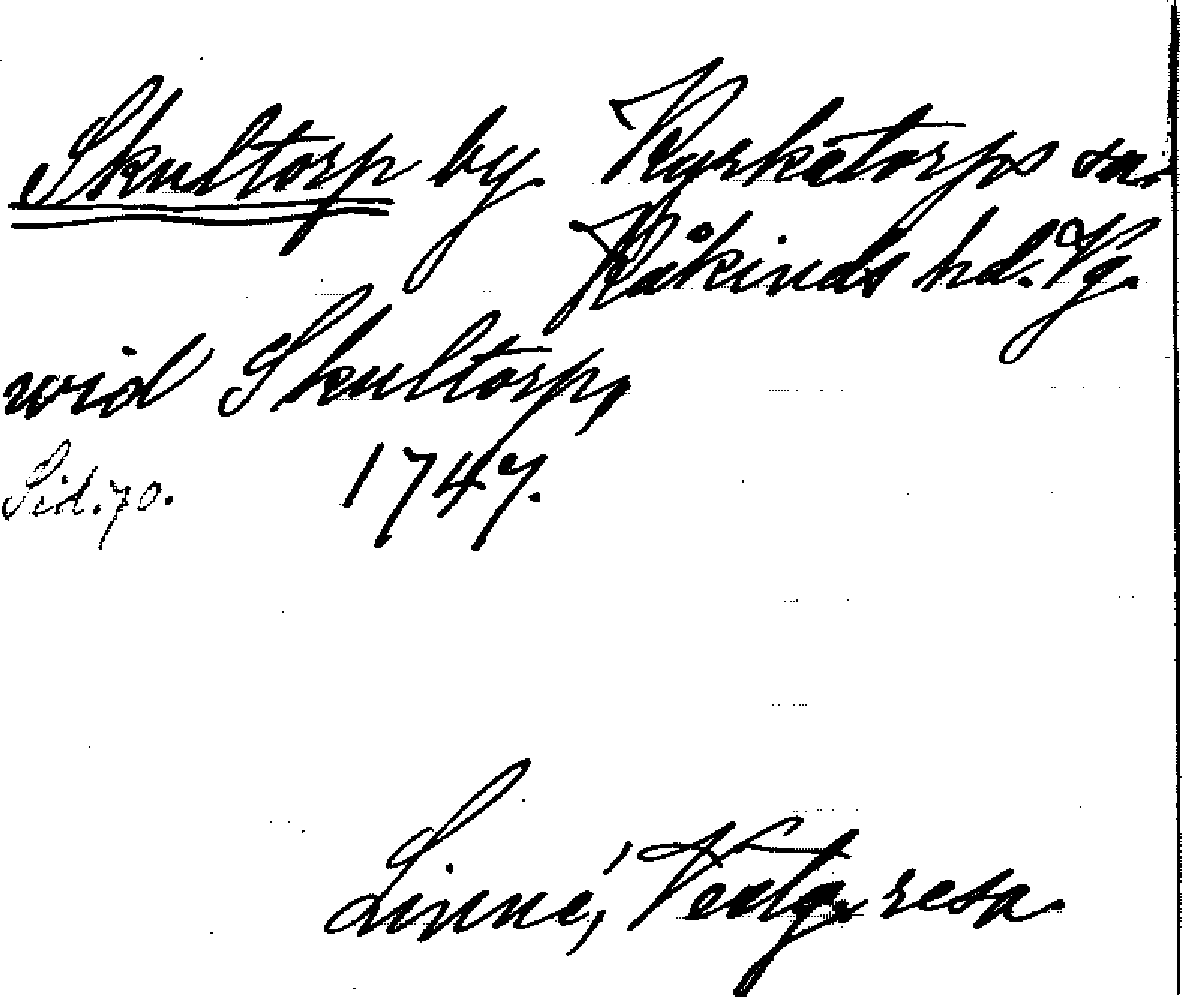 Skultorp by Kyrketorps sn.
Kåkinds hd. Vg.
wid Skultorp,
Sid. 70. 1747.
Linné, Vestg. resa.